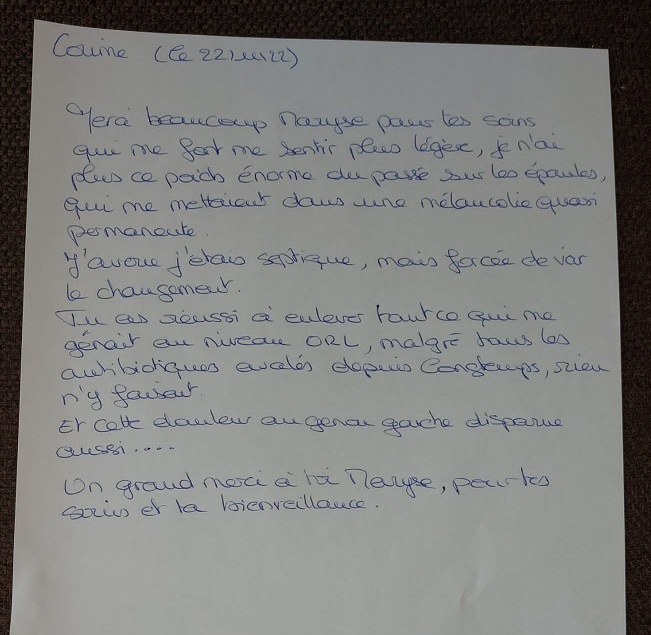 Corinne (le 22 juin 22)
Merci beaucoup Maryse pour tes soins
qui me font me sentir plus légère, je n'ai
plus ce poids énorme du passé sur les épaules,
qui me mettaient dans une mélancolie quasi
permanente.
J'avoue j'étais septique, mais forcée de voir
le changement.
Tu as réussi à enlever tout ce qui me
gênait au niveau ORL, malgré tous les
antibiotiques avalés depuis longtemps, rien
n'y faisait
Et cette douleur au genou gauche disparue
aussi....
Un grand merci à toi Maryse, pour tes
soins et ta bienveillance.